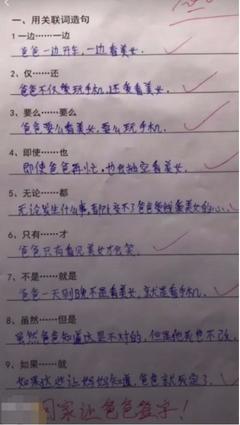 一、用关联词造句
1 一边……一边
爸爸一边开车,一边看美女.
2、仅……还
爸爸不仅爱玩手机,还爱看美女.
3、要么……要么
爸爸要么看美女,要么玩手机.
4、即使……也
即使爸爸再忙,也会抽空看美女.
5、无论……都
无论发生什么事,都改变不了爸爸爱看美女的心.
6、只有……才
爸爸只有看见美女才会笑.
7、不是……就是
爸爸一天到晚不是看美女,就是看手机.
8、虽然……但是
虽然爸爸知道这是不对的,但是他死也不改.
9、如果……就
如果这些让妈妈知道,爸爸就死定了.
回家让爸爸签字!